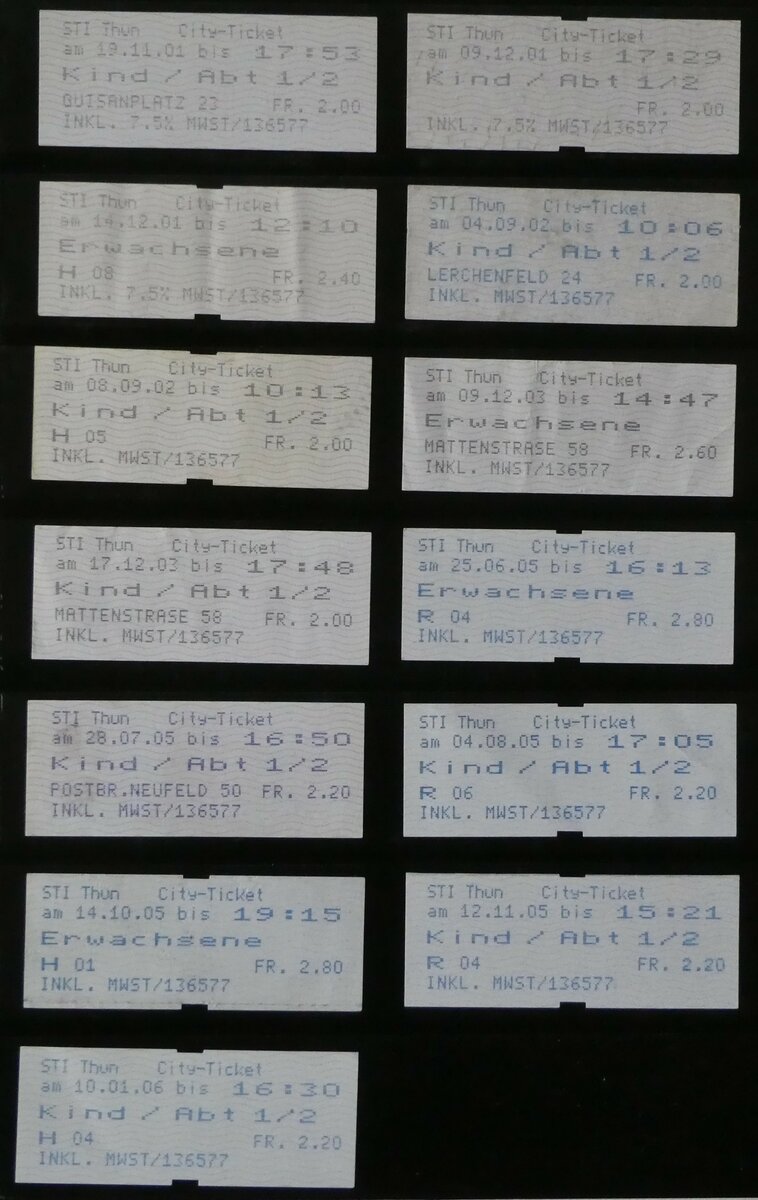 STI Thun City-Ticket
am 19.11.01 bis 17:53
Kind / Abt 1/2
GUISANPLATZ 23 FR. 2.00
INKL. 7.5% MWST/136577
STI Thun City-Ticket
am 09.12.01 bis 17:29
Kind / Abt 1/2
FR. 2.00
INKL. 7.5% MWST/136577
STI Thun City-Ticket
am 14.12.01 bis 12:10
Erwachsene
H 08 FR. 2.40
INKL. 7.5% MWST/136577
STI Thun City-Ticket
am 04.09.02 bis 10:06
Kind / Abt 1/2
LERCHENFELD 24 FR. 2.00
INKL. MWST/136577
STI Thun City-Ticket
am 08.09.02 bis 10:13
Kind / Abt 1/2
H 05 FR. 2.00
INKL. MWST/136577
STI Thun City-Ticket
am 09.12.03 bis 14:47
Erwachsene
MATTENSTRASE 58 FR. 2.60
INKL. MWST/136577
STI Thun City-Ticket
am 17.12.03 bis 17:48
Kind / Abt 1/2
MATTENSTRASE 58 FR. 2.00
INKL. MWST/136577
STI Thun City-Ticket
am 25.06.05 bis 16:13
Erwachsene
R 04 FR. 2.80
INKL. MWST/136577
STI Thun City-Ticket
am 28.07.05 bis 16:50
Kind / Abt 1/2
POSTBR.NEUFELD 50 FR. 2.20
INKL. MWST/136577
STI Thun City-Ticket
am 04.08.05 bis 17:05
Kind / Abt 1/2
R 06 FR. 2.20
INKL. MWST/136577
STI Thun City-Ticket
am 14.10.05 bis 19:15
Erwachsene
H 01 FR. 2.80
INKL. MWST/136577
STI Thun City-Ticket
am 12.11.05 bis 15:21
Kind / Abt 1/2
R 04 FR. 2.20
INKL. MWST/136577
STI Thun City-Ticket
am 10.01.06 bis 16:30
Kind / Abt 1/2
H 04 FR. 2.20
INKL. MWST/136577